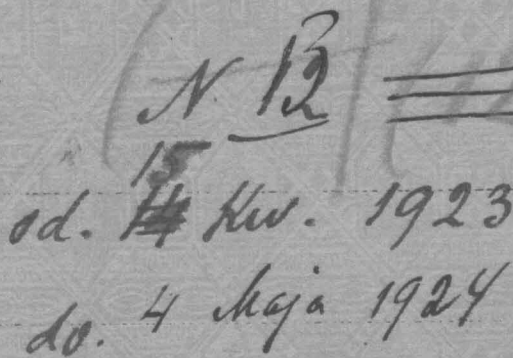 N. 12
od. 15 Kw. 1923
do. 4 Maja 1924